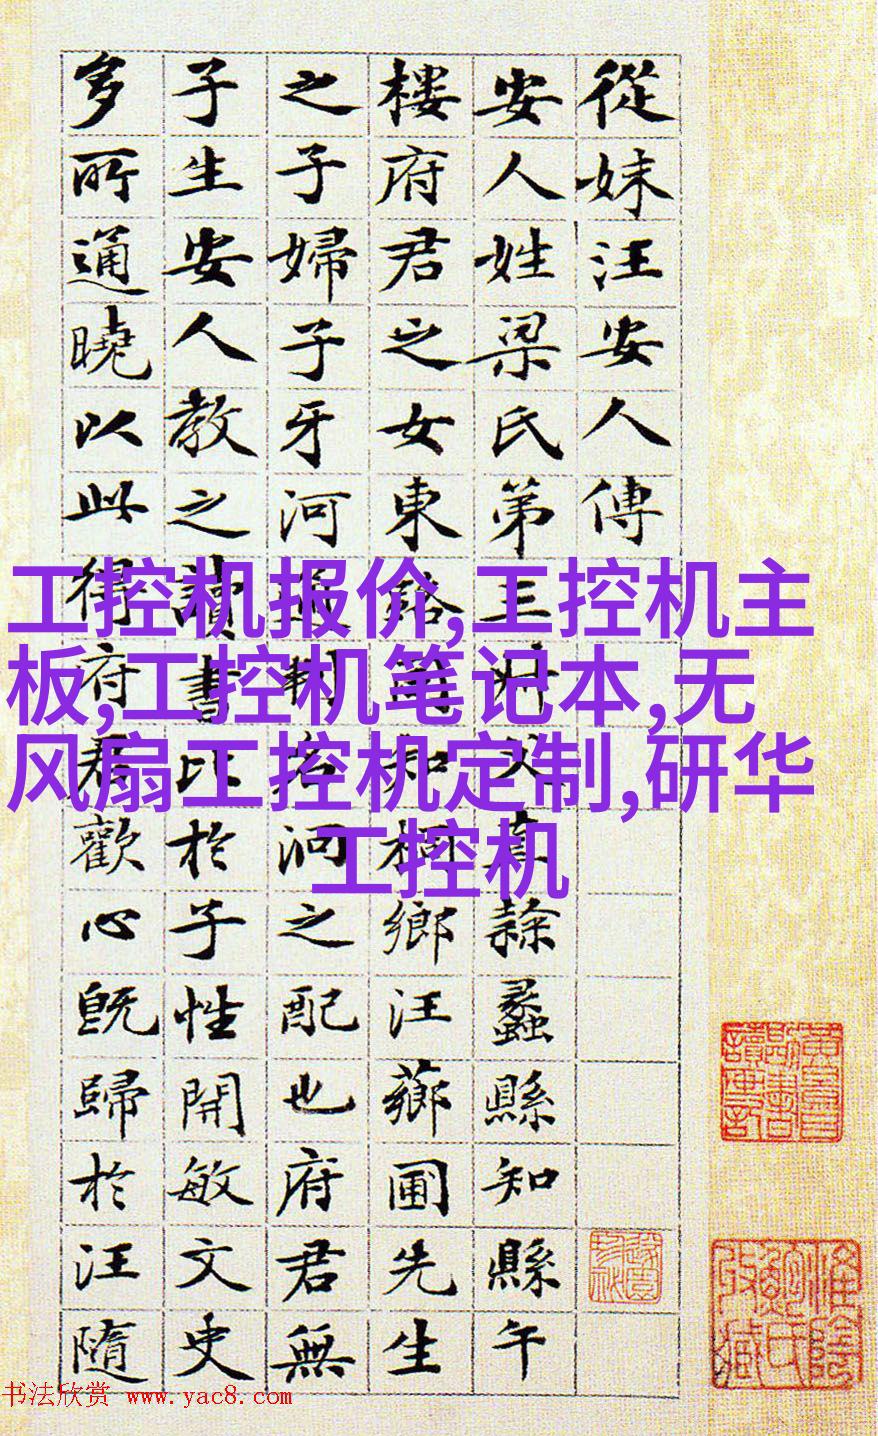 從妹汪安人傳
安人姓梁氏第三父直隸蠡縣知縣午
樓府君之女東路同知桐鄉汪薌圃先生
之子婦子牙河通判名泂之配也府君無
子生安人教之讀書比於子性開敏文史
多所通曉以此得府君歡心既歸於汪隨
工控机报价,工控机主
板,工控机笔记本,无
风扇工控机定制,研华
工控机
书法欣赏 www.yac8.com